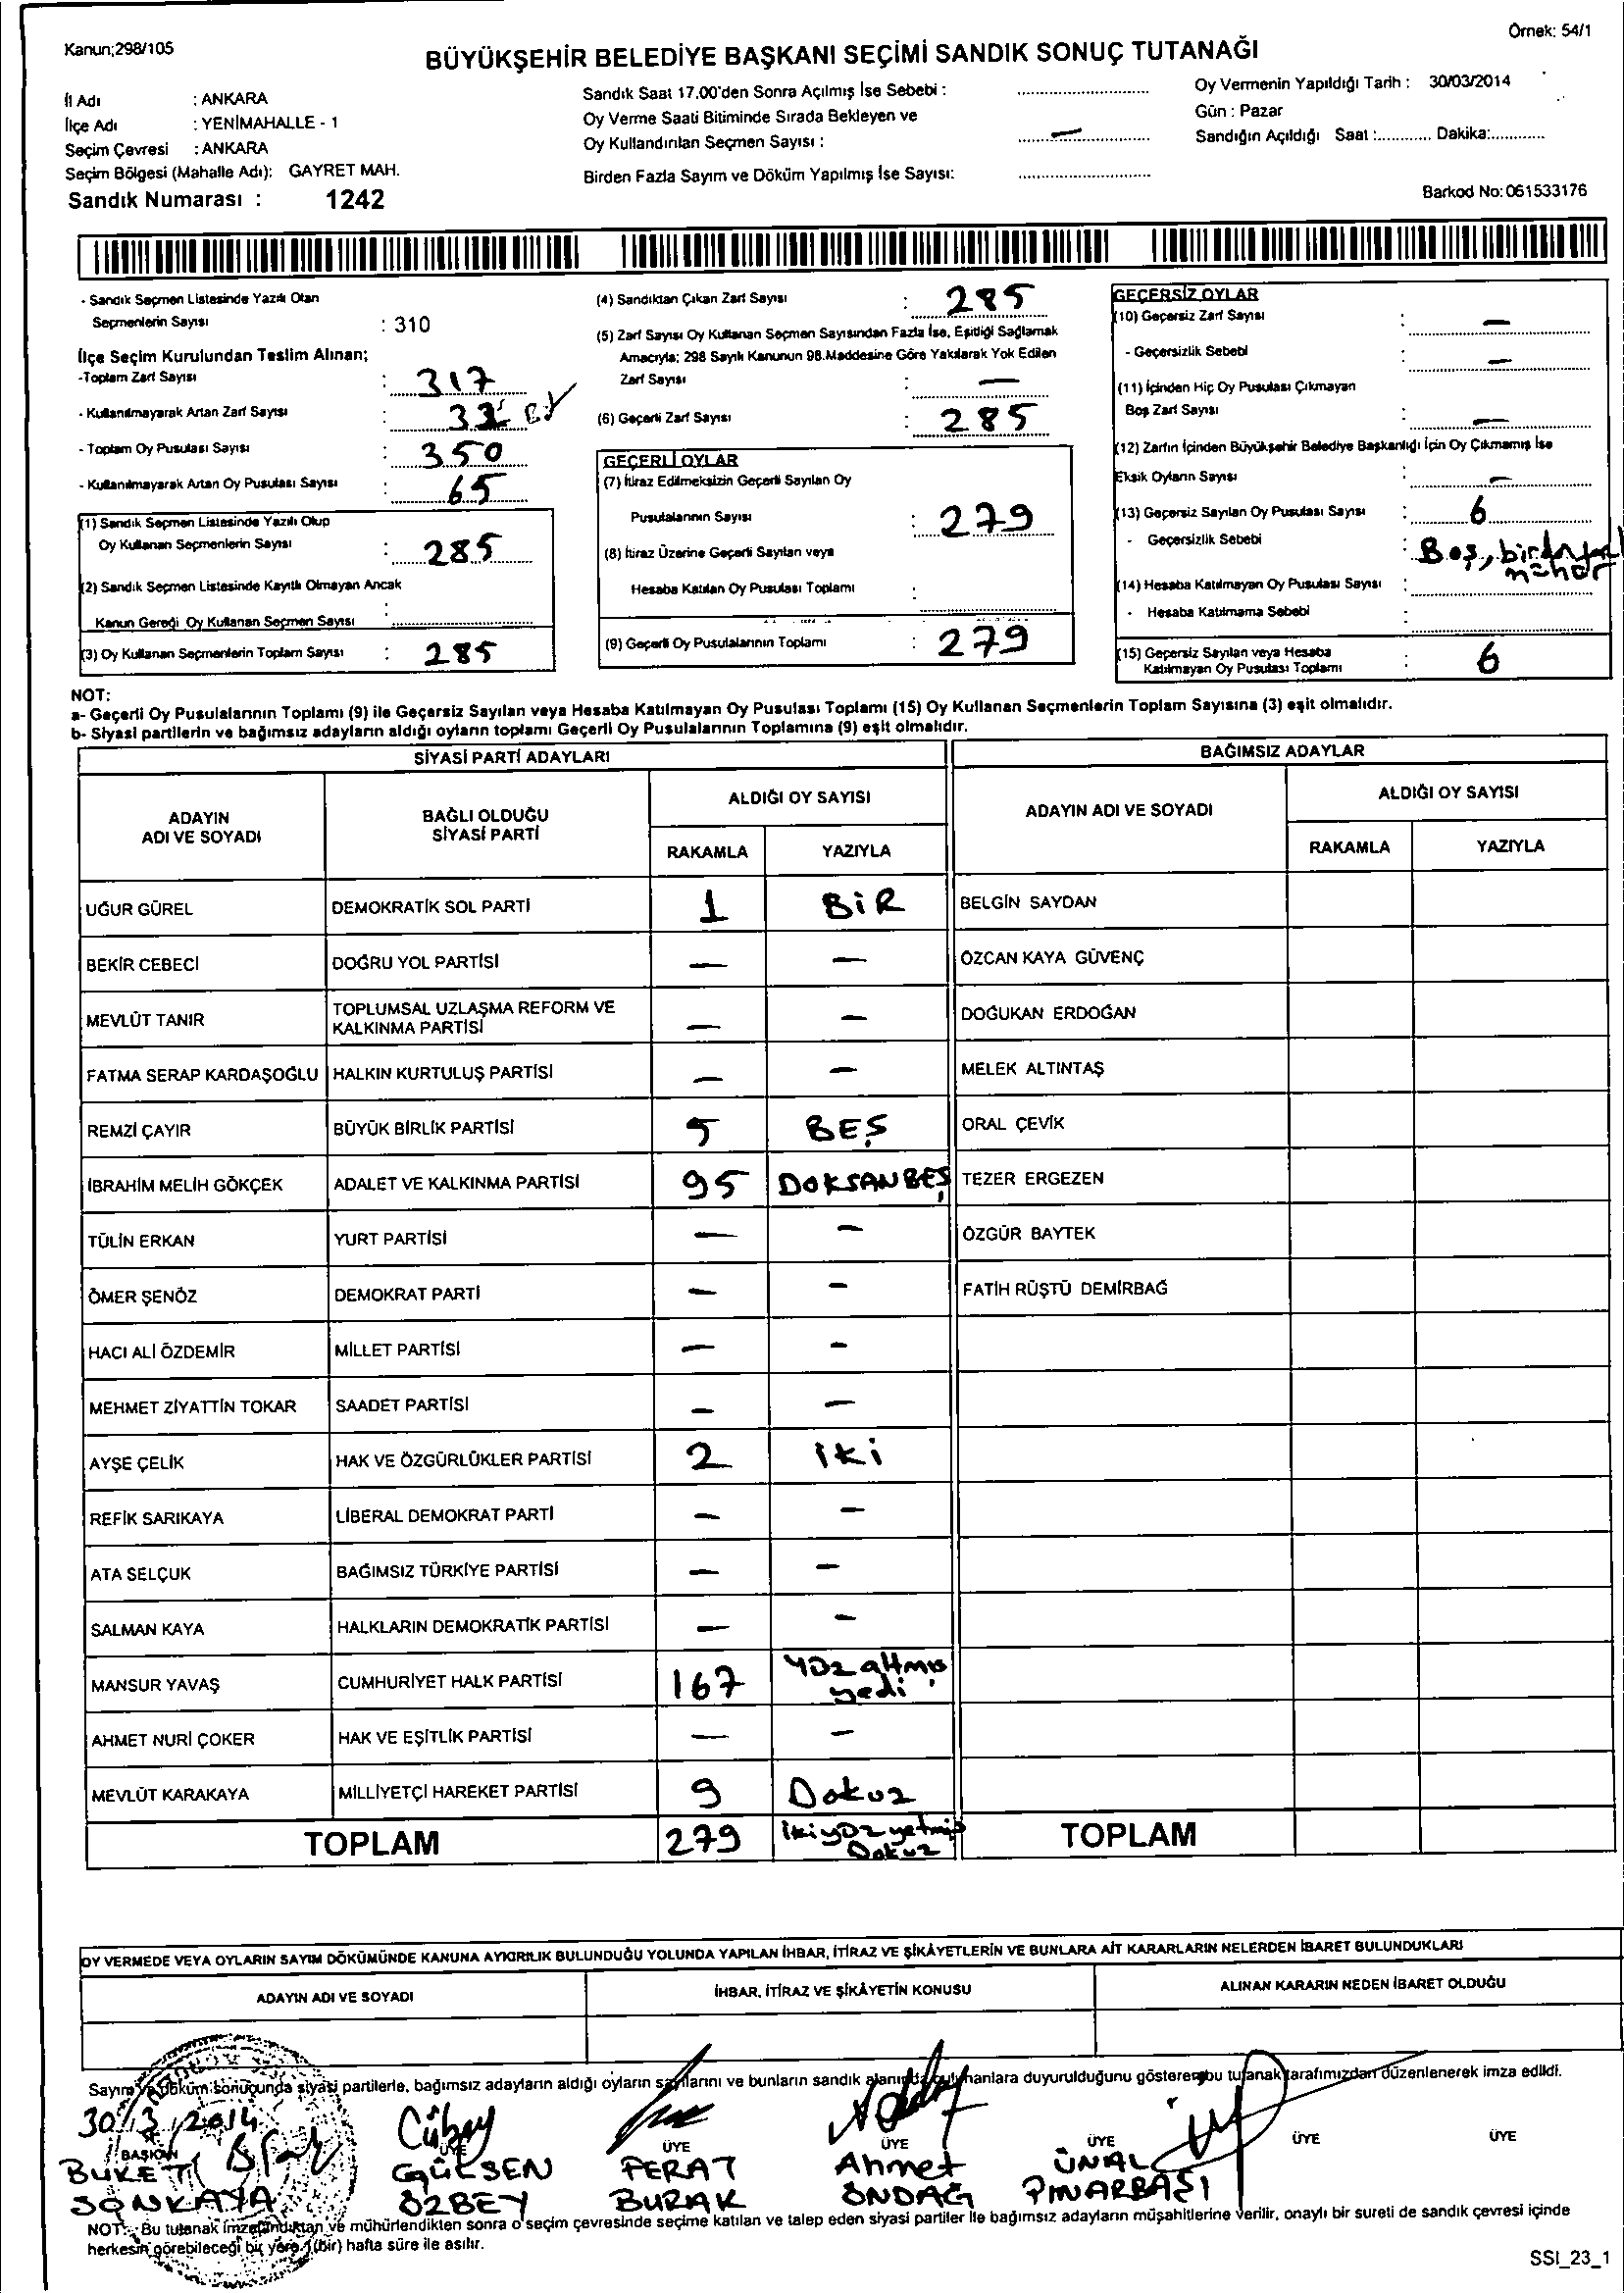 Kanun;298/105
Örnek: 54/1
BÜYÜKŞEHİR BELEDİYE BAŞKANI SEÇİMİ SANDIK SONUÇ TUTANAĞI
İl Adı : ANKARA
İlçe Adı : YENİMAHALLE - 1
Seçim Çevresi : ANKARA
Seçim Bölgesi (Mahalle Adı): GAYRET MAH.
Sandık Numarası : 1242
Sandık Saat 17.00'den Sonra Açılmış İse Sebebi : ..............
Oy Verme Saati Bitiminde Sırada Bekleyen ve
Oy Kullandırılan Seçmen Sayısı : —
Birden Fazla Sayım ve Döküm Yapılmış İse Sayısı: ..............
Oy Vermenin Yapıldığı Tarih : 30/03/2014
Gün : Pazar
Sandığın Açıldığı Saat :............ Dakika:............
Barkod No: 061533176
- Sandık Seçmen Listesinde Yazılı Olan
Seçmenlerin Sayısı : 310
İlçe Seçim Kurulundan Teslim Alınan;
-Toplam Zarf Sayısı : 317
- Kullanılmayarak Artan Zarf Sayısı : 32
- Toplam Oy Pusulası Sayısı : 350
- Kullanılmayarak Artan Oy Pusulası Sayısı : 65
(1) Sandık Seçmen Listesinde Yazılı Olup
Oy Kullanan Seçmenlerin Sayısı : 285
(2) Sandık Seçmen Listesinde Kayıtlı Olmayan Ancak
Kanun Gereği Oy Kullanan Seçmen Sayısı :
(3) Oy Kullanan Seçmenlerin Toplam Sayısı : 285
(4) Sandıktan Çıkan Zarf Sayısı : 285
(5) Zarf Sayısı Oy Kullanan Seçmen Sayısından Fazla İse, Eşitliği Sağlamak
Amacıyla; 298 Sayılı Kanunun 98.Maddesine Göre Yakılarak Yok Edilen
Zarf Sayısı : —
(6) Geçerli Zarf Sayısı : 285
GEÇERLİ OYLAR
(7) İtiraz Edilmeksizin Geçerli Sayılan Oy
Pusulalarının Sayısı : 279
(8) İtiraz Üzerine Geçerli Sayılan veya
Hesaba Katılan Oy Pusulası Toplamı :
(9) Geçerli Oy Pusulalarının Toplamı : 279
GEÇERSİZ OYLAR
(10) Geçersiz Zarf Sayısı : —
- Geçersizlik Sebebi : —
(11) İçinden Hiç Oy Pusulası Çıkmayan
Boş Zarf Sayısı : —
(12) Zarfın İçinden Büyükşehir Belediye Başkanlığı İçin Oy Çıkmamış İse
Eksik Oyların Sayısı : —
(13) Geçersiz Sayılan Oy Pusulası Sayısı : 6
- Geçersizlik Sebebi : Boş,
(14) Hesaba Katılmayan Oy Pusulası Sayısı :
- Hesaba Katılmama Sebebi :
(15) Geçersiz Sayılan veya Hesaba
Katılmayan Oy Pusulası Toplamı : 6
NOT:
a- Geçerli Oy Pusulalarının Toplamı (9) ile Geçersiz Sayılan veya Hesaba Katılmayan Oy Pusulası Toplamı (15) Oy Kullanan Seçmenlerin Toplam Sayısına (3) eşit olmalıdır.
b- Siyasi partilerin ve bağımsız adayların aldığı oyların toplamı Geçerli Oy Pusulalarının Toplamına (9) eşit olmalıdır.
SİYASİ PARTİ ADAYLARI
BAĞIMSIZ ADAYLAR
ADAYIN ADI VE SOYADI
BAĞLI OLDUĞU SİYASİ PARTİ
ALDIĞI OY SAYISI
RAKAMLA YAZIYLA
ADAYIN ADI VE SOYADI
ALDIĞI OY SAYISI
RAKAMLA YAZIYLA
UĞUR GÜREL DEMOKRATİK SOL PARTİ 1 BİR BELGİN SAYDAN
BEKİR CEBECİ DOĞRU YOL PARTİSİ — — ÖZCAN KAYA GÜVENÇ
MEVLÜT TANIR TOPLUMSAL UZLAŞMA REFORM VE KALKINMA PARTİSİ — — DOĞUKAN ERDOĞAN
FATMA SERAP KARDAŞOĞLU HALKIN KURTULUŞ PARTİSİ — — MELEK ALTINTAŞ
REMZİ ÇAYIR BÜYÜK BİRLİK PARTİSİ 5 BEŞ ORAL ÇEVİK
İBRAHİM MELİH GÖKÇEK ADALET VE KALKINMA PARTİSİ 95 DOKSANBEŞ TEZER ERGEZEN
TÜLİN ERKAN YURT PARTİSİ — — ÖZGÜR BAYTEK
ÖMER ŞENÖZ DEMOKRAT PARTİ — — FATİH RÜŞTÜ DEMİRBAĞ
HACI ALİ ÖZDEMİR MİLLET PARTİSİ — —
MEHMET ZİYATTİN TOKAR SAADET PARTİSİ — —
AYŞE ÇELİK HAK VE ÖZGÜRLÜKLER PARTİSİ 2 iki
REFİK SARIKAYA LİBERAL DEMOKRAT PARTİ — —
ATA SELÇUK BAĞIMSIZ TÜRKİYE PARTİSİ — —
SALMAN KAYA HALKLARIN DEMOKRATİK PARTİSİ — —
MANSUR YAVAŞ CUMHURİYET HALK PARTİSİ 167 Yüz altmış yedi
AHMET NURİ ÇOKER HAK VE EŞİTLİK PARTİSİ — —
MEVLÜT KARAKAYA MİLLİYETÇİ HAREKET PARTİSİ 9 Dokuz
TOPLAM 279 ikiyüz yetmiş Dokuz TOPLAM
OY VERMEDE VEYA OYLARIN SAYIM DÖKÜMÜNDE KANUNA AYKIRILIK BULUNDUĞU YOLUNDA YAPILAN İHBAR, İTİRAZ VE ŞİKÂYETLERİN VE BUNLARA AİT KARARLARIN NELERDEN İBARET BULUNDUKLARI
ADAYIN ADI VE SOYADI İHBAR, İTİRAZ VE ŞİKÂYETİN KONUSU ALINAN KARARIN NEDEN İBARET OLDUĞU
Sayım ve döküm sonucunda siyasi partilerle, bağımsız adayların aldığı oyların sayılarını ve bunların sandık alanında bulunanlara duyurulduğunu gösteren işbu tutanak tarafımızdan düzenlenerek imza edildi.
30/3/2014
BAŞKAN ÜYE ÜYE ÜYE ÜYE ÜYE ÜYE
BUKET GÜLSEN FERAT Ahmet ÜNAL
SONKAYA ÖZBEY BURAK ÖNDAĞ PINARBAŞI
NOT: Bu tutanak imzalandıktan ve mühürlendikten sonra o seçim çevresinde seçime katılan ve talep eden siyasi partiler ile bağımsız adayların müşahitlerine verilir, onaylı bir sureti de sandık çevresi içinde
herkesin görebileceği bir yere 1 (bir) hafta süre ile asılır.
SSI_23_1